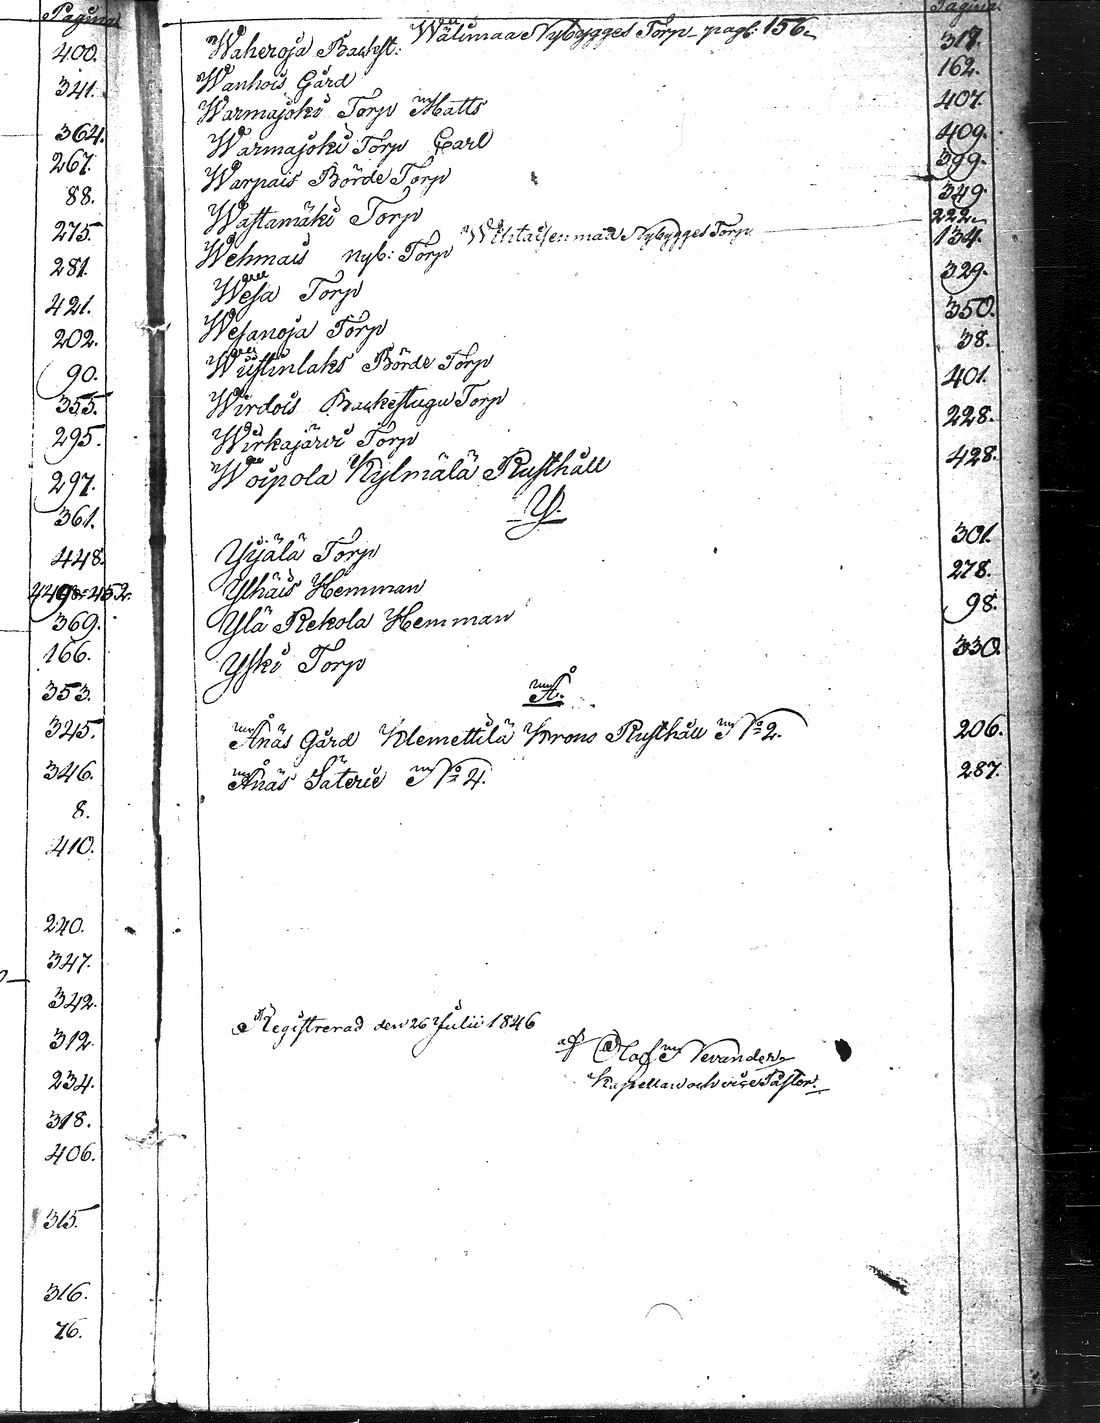 Pagina.
400.
341.
364.
267.
88.
275.
281.
421.
202.
90.
355.
295.
297.
361.
448.
452.
369.
166.
353.
345.
346.
8.
410.
240.
347.
342.
312.
234.
318.
406.
315.
316.
76.
Pagina.
Wälimaa Nybygges Torp pag: 156.
Waheroja Backst: 317.
Wanhois Gård 162.
Warmajoki Torp Matts 407.
Warmajoki Torp Carl 409.
Warpais Börde Torp 399.
Wastamäki Torp 349.
Nybygges Torp 222.
Wehmais nyb: Torp 134.
Wesa Torp 329.
Wesanoja Torp 350.
Wiistinlaks Börde Torp 38.
Wirdois Backestugu Torp 401.
Wirkajärvi Torp 228.
Woipola Kylmälä Rusthåll 428.
Y.
Yijälä Torp 301.
Ylhäis Hemman 278.
Ylä Rekola Hemman 98.
Yski Torp 330.
Å.
Ånäs Gård Klemettilä Krono Rusthåll No 2. 206.
Ånäs Säterie No 4. 287.
Registrerad den 26 Julii 1846
af Olof Nevander
Kapellan och vice Pastor.